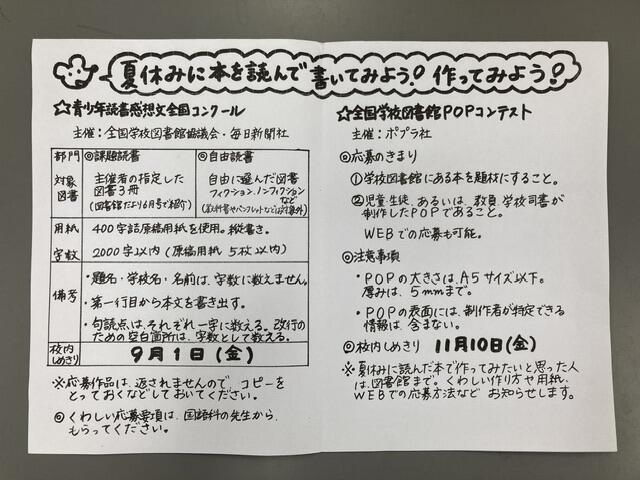 夏休みに本を読んで書いてみよう!作ってみよう!
☆青少年読書感想文全国コンクール
主催:全国学校図書館協議会・毎日新聞社
部門 ◎課題読書 ◎自由読書
対象図書
主催者の指定した
図書3冊
(図書館だより6月号で紹介)
自由に選んだ図書
フィクション、ノンフィクション
など
(教科書やパンフレットなどは対象外)
用紙 400字詰原稿用紙を使用。縦書き。
字数 2000字以内(原稿用紙5枚以内)
備考
・題名・学校名・名前は、字数に数えません。
・第一行目から本文を書き出す。
・句読点は、それぞれ一字に数える。改行の
ための空白箇所は、字数として数える。
校内しめきり 9月1日(金)
※応募作品は、返されませんので、コピーを
とっておくなどしておいてください。
◎くわしい応募要項は、国語科の先生から、
もらってください。
☆全国学校図書館POPコンテスト
主催:ポプラ社
◎応募のきまり
①学校図書館にある本を題材にすること。
②児童生徒、あるいは、教員、学校司書が
制作したPOPであること。
WEBでの応募も可能。
◎注意事項
・POPの大きさは、A5サイズ以下。
厚みは、5mmまで。
・POPの表面には、制作者が特定できる
情報は、含まない。
◎校内しめきり 11月10日(金)
※夏休みに読んだ本で作ってみたいと思った人
は、図書館まで。くわしい作り方や用紙、
WEBでの応募方法など お知らせします。